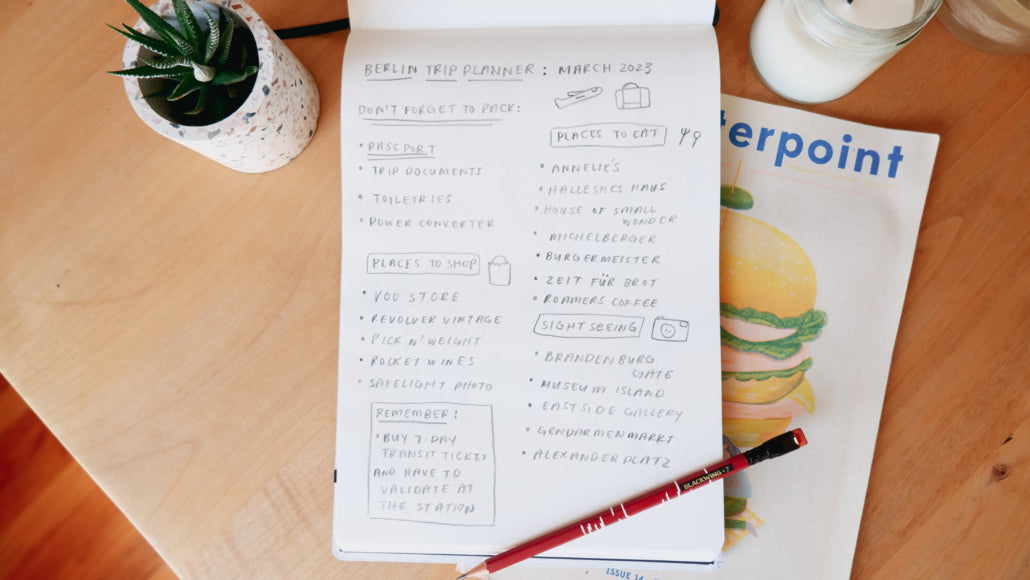 BERLIN TRIP PLANNER: MARCH 2023
DON'T FORGET TO PACK:
• PASSPORT
• TRIP DOCUMENTS
• TOILETRIES
• POWER CONVERTER
PLACES TO SHOP
• VOO STORE
• REVOLVER VINTAGE
• PICK N' WEIGHT
• ROCKET WINES
• SAFELIGHT PHOTO
REMEMBER:
• BUY 7-DAY
TRANSIT TICKET
AND HAVE TO
VALIDATE AT
THE STATION
PLACES TO EAT
• ANNELIE'S
• HALLESHES HAUS
• HOUSE OF SMALL
WONDER
• MICHELBERGER
• BURGERMEISTER
• ZEIT FÜR BROT
• ROAMERS COFFEE
SIGHTSEEING
• BRANDENBURG
GATE
• MUSEUM ISLAND
• EAST SIDE GALLERY
• GENDARMENMARKT
• ALEXANDERPLATZ
terpoint
BLACKWING • 7
ISSUE 14